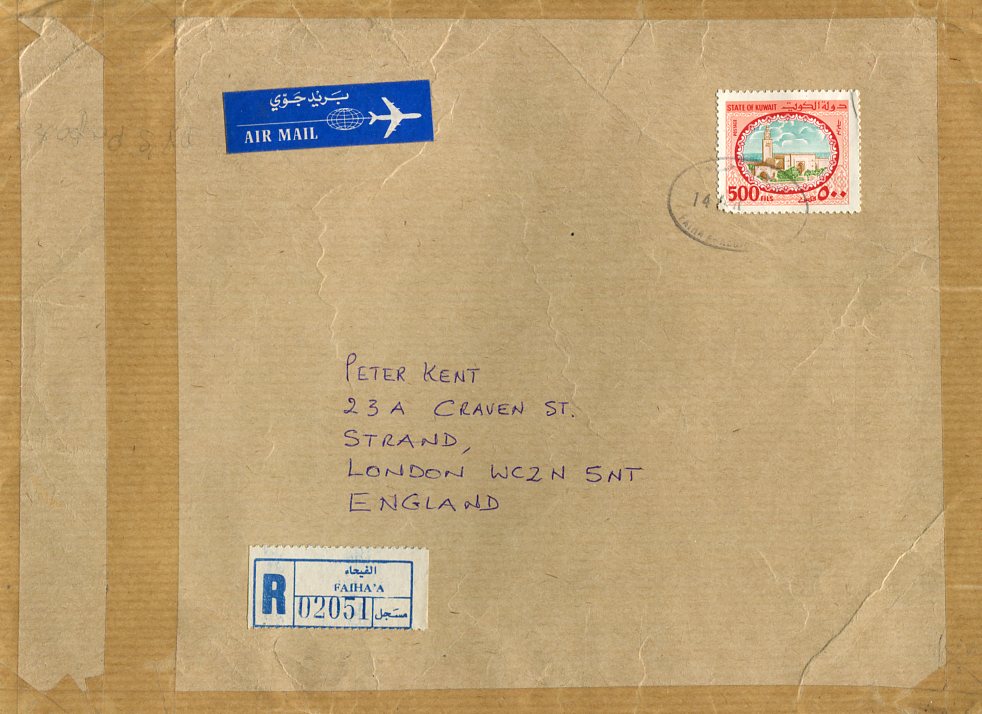 بَريْد جَوّي
AIR MAIL
STATE OF KUWAIT دولة الكويت
POSTAGE
500 FILS فلس ٥٠٠
14
PETER KENT
23A CRAVEN ST.
STRAND,
LONDON WC2N 5NT
ENGLAND
R
الفيحاء
FAIHA'A
02051
مسَجل